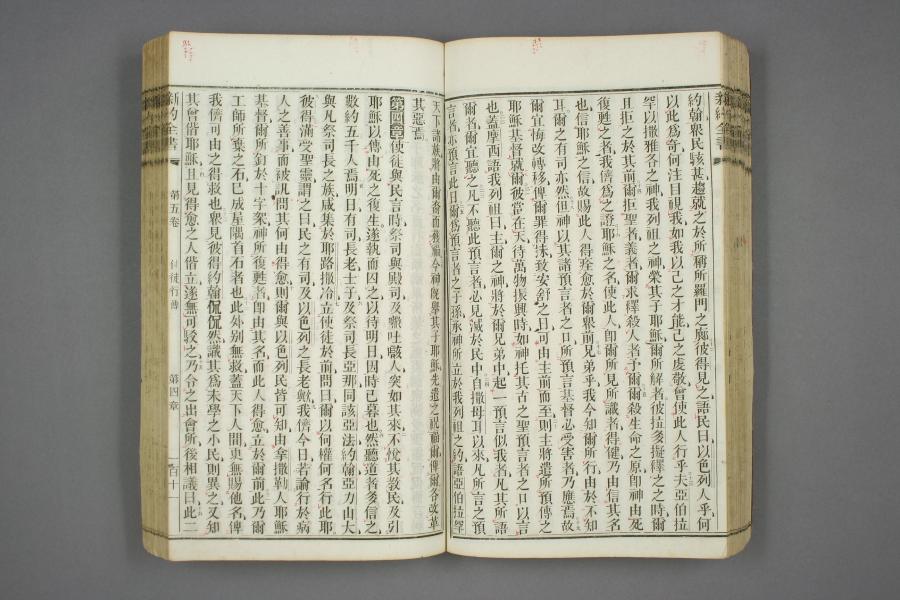 約翰眾民駭甚趨就之於所稱所羅門之廊彼得見之語民曰以色列人乎何
以此為奇何注目視我如我以己之才能己之虔敬曾使此人行乎夫亞伯拉
罕以撒雅各之神我列祖之神榮其子耶穌爾所解者彼拉多擬釋之之時爾
且拒之於其前爾拒聖者義者爾求釋殺人者爾殺生命之原卽神由死
復甦之者我儕為之證耶穌之名使此人卽爾所見所識者得健乃由信其名
也信耶穌之信故賜此人得痊愈於爾眾前兄弟乎我今知爾所行由於不知
耳爾之有司亦然但神以其諸預言者之口所預言基督必受害者乃應焉故
爾宜悔改轉移俾爾罪得抹致安舒之日可由主前而至則主將遣所預傳之
耶穌基督就爾彼當在天待萬物振興時如神托其古之聖預言者之口以言
也蓋摩西語我列祖曰主爾之神將於爾兄弟中起一預言似我者凡其所語
爾者爾宜聽之凡不聽此預言者必見滅於民中自撒母耳以來凡所言之預
言者亦預言此日爾為預言者之子孫承神所立於我列祖之約語亞伯拉罕
天下諸族將由爾裔而獲福今神旣舉其子耶穌先遣之祝福爾俾爾各改革
其惡焉
第四章使徒與民言時祭司與殿司及㗔吐㖠人突如其來不悅其教民及引
耶穌以傳由死之復生遂執而囚之以待明日因時已暮也然聽道者多信之
數約五千人焉明日有司長老士子及祭司長亞那同該亞法約翰亞力山大
與凡祭司長之族咸集於耶路撒冷立使徒於前問曰爾以何權何名行此耶
彼得滿受聖靈謂之曰民之有司及以色列之長老歟我儕今日若諭行於病
人之善事而被訊問其何由得愈則爾與以色列民皆可知由拿撒勒人耶穌
基督爾所釘於十字架神所復甦者卽由其名而此人得愈立於爾前此乃爾
工師所棄之石已成屋隅首石者也此外別無救蓋天下人間更無賜他名俾
我儕可由之得救也眾見彼得約翰侃侃然識其為未學之小民則異之又知
其曾偕耶穌且見得愈之人偕立遂無可駁之乃令之出會所後相議曰此二
新約全書
第五卷
使徒行傳
第四章
百十一
新約全書